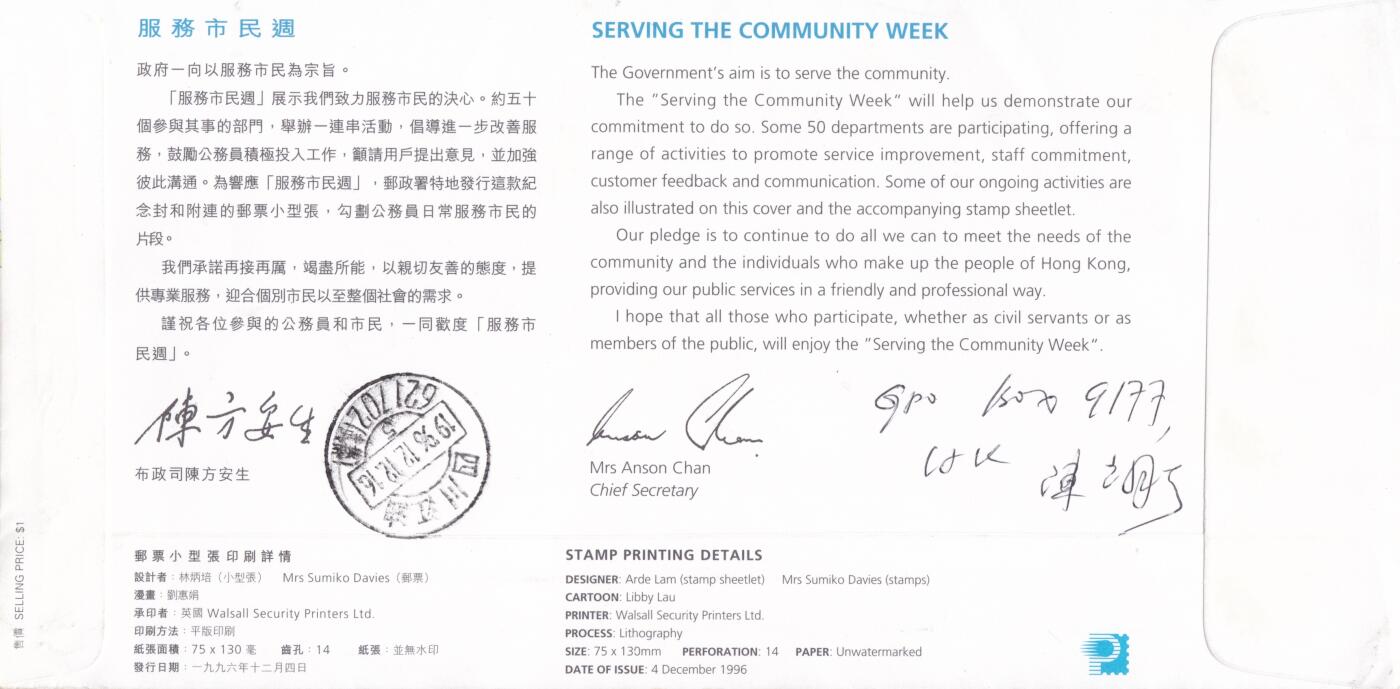 服務市民週
政府一向以服務市民為宗旨。
「服務市民週」展示我們致力服務市民的決心。約五十
個參與其事的部門，舉辦一連串活動，倡導進一步改善服
務，鼓勵公務員積極投入工作，籲請用戶提出意見，並加強
彼此溝通。為響應「服務市民週」，郵政署特地發行這款紀
念封和附連的郵票小型張，勾劃公務員日常服務市民的
片段。
我們承諾再接再厲，竭盡所能，以親切友善的態度，提
供專業服務，迎合個別市民以至整個社會的需求。
謹祝各位參與的公務員和市民，一同歡度「服務市
民週」。
陳方安生
布政司陳方安生
621702
19 96.12.12.16
5
四川
SERVING THE COMMUNITY WEEK
The Government's aim is to serve the community.
The "Serving the Community Week" will help us demonstrate our
commitment to do so. Some 50 departments are participating, offering a
range of activities to promote service improvement, staff commitment,
customer feedback and communication. Some of our ongoing activities are
also illustrated on this cover and the accompanying stamp sheetlet.
Our pledge is to continue to do all we can to meet the needs of the
community and the individuals who make up the people of Hong Kong,
providing our public services in a friendly and professional way.
I hope that all those who participate, whether as civil servants or as
members of the public, will enjoy the "Serving the Community Week".
Anson Chan
Mrs Anson Chan
Chief Secretary
GPO Box 9177,
HK
陳
售價 SELLING PRICE: $1
郵票小型張印刷詳情
設計者：林炳培（小型張） Mrs Sumiko Davies（郵票）
漫畫：劉惠娟
承印者：英國 Walsall Security Printers Ltd.
印刷方法：平版印刷
紙張面積：75 x 130 毫 齒孔：14 紙張：並無水印
發行日期：一九九六年十二月四日
STAMP PRINTING DETAILS
DESIGNER: Arde Lam (stamp sheetlet) Mrs Sumiko Davies (stamps)
CARTOON: Libby Lau
PRINTER: Walsall Security Printers Ltd.
PROCESS: Lithography
SIZE: 75 x 130mm PERFORATION: 14 PAPER: Unwatermarked
DATE OF ISSUE: 4 December 1996